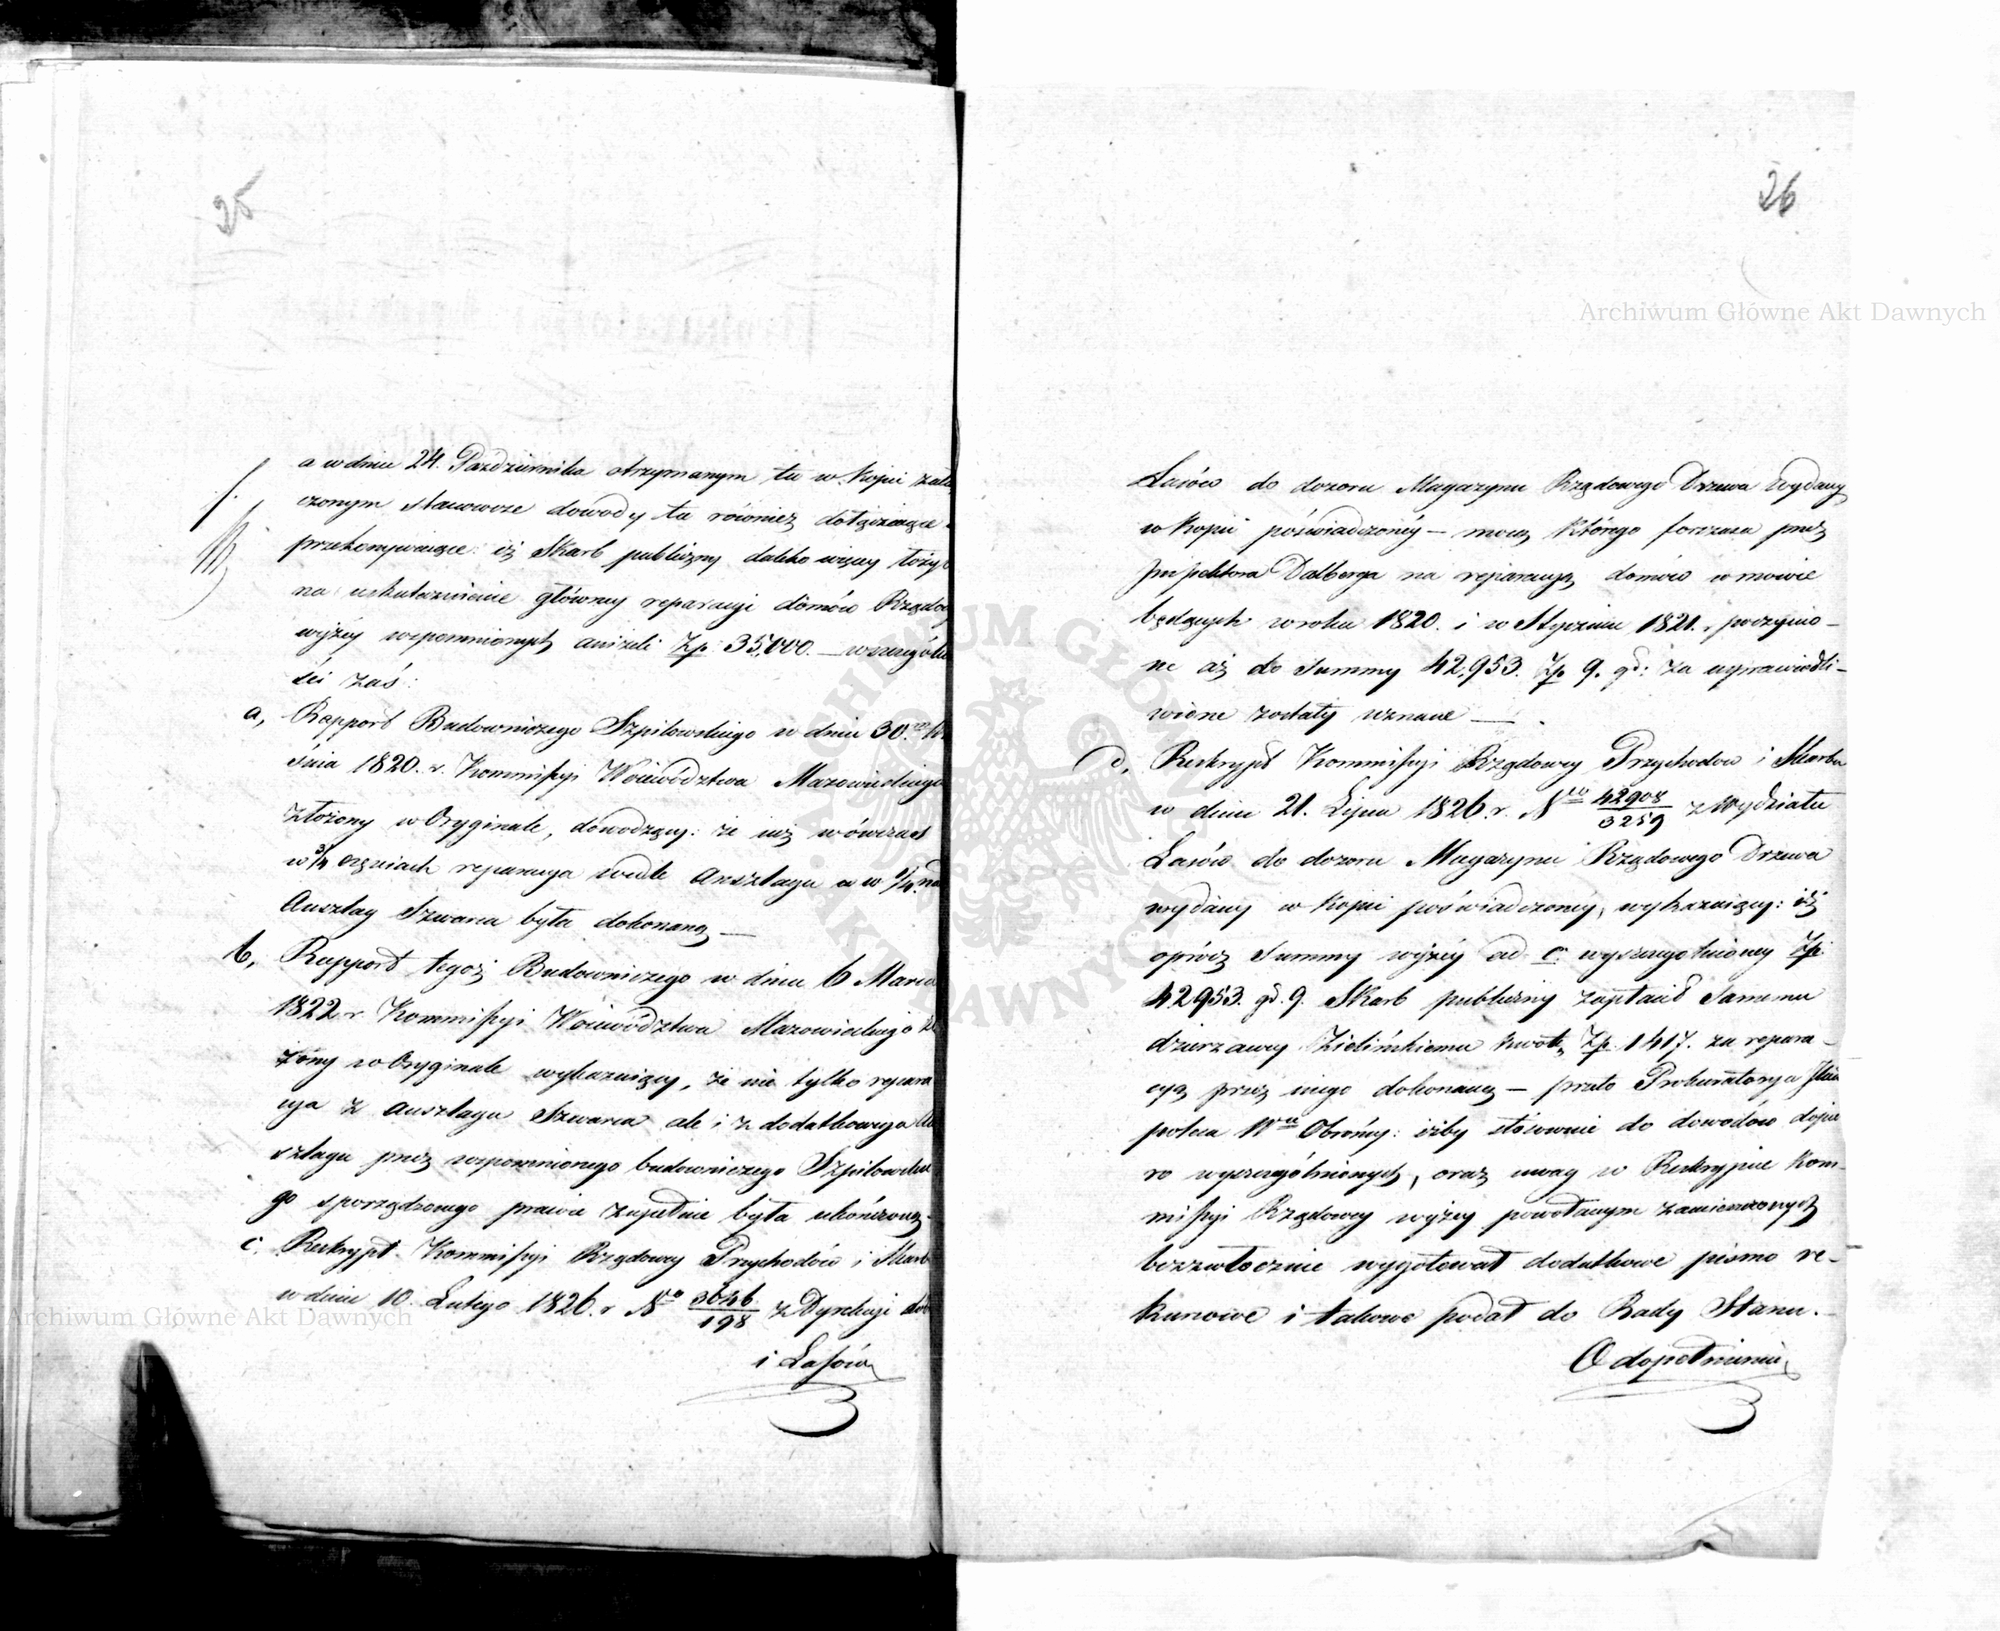 25
a w dniu 24. Pazdziernika otrzymanym tu w Kopii załą
czonym stanowcze dowody tu również dołączające
przekonywaiące: iż Skarb publiczny daleko więcey łoży
na uskutecznienie główney reparacyi domów Rządo
wyżey wspomnionych aniżeli Zp: 35,000. — w szczegól
ści zaś:
a, Rapport Budowniczego Szpilowskiego w dniu 30.go
śnia 1820. r. Kommissyi Woiewództwa Mazowieckiego
złożony w Oryginale, dowodzący: że iuż wówczas
w 3/4 częściach reparacya wedle Anszlagu a w 1/4 na
Anszlag Szwarca była dokonaną —
b, Rapport tegoż Budowniczego w dniu 6 Marca
1822 r. Kommissyi Woiewództwa Mazowieckiego zło
żony w Oryginale wykazuiący, że nie tylko repara
cya z Anszlagu Szwarca ale i z dodatkowego An
szlagu przez wspomnionego budowniczego Szpilowskie
go sporządzonego prawie zupełnie była ukończoną.
c. Reskrypt Kommissyi Rządowey Przychodów i Skarb
w dniu 10. Lutego 1826. r No 3646/198 z Dyrekcyi dóbr
i Lasów
26
Lasów do dozoru Magazynu Rządowego Drzewa wydany
w Kopii poświadczonéy — mocą którego forszusa przez
Inspektora Dalberga na reparacyą domów w mowie
będących w roku 1820. i w Styczniu 1821. poczynio-
ne aż do Summy 42,953. Zp 9. gr: za usprawiedli-
wione zostały uznane —
d, Reskrypt Kommissyi Rządowey Przychodów i Skarbu
w dniu 21. Lipca 1826. r. Nro 42908/3259 z Wydziału
Lasów do dozoru Magazynu Rządowego Drzewa
wydany w Kopii poświadczoney, wykazuiący: iż
oprócz Summy wyżéy ad c wyszczegolnioney Zp:
42953. gr. 9. Skarb publiczny zapłacił Samemu
dzierzawcy Zielińskiemu kwotę Zp. 1417. za repara-
cyą przez niego dokonaną — przeto Prokuratorya Jlna
poleca Wu Obrońcy: iżby stósownie do dowodów dopie
ro wyszczególnionych, oraz uwag w Reskrypcie Kom-
missyi Rządowey wyżey powołanym zamieszczonych
bezzwłocznie wygotował dodatkowe pismo re-
kursowe i takowe podał do Rady Stanu.
O dopełnieniu
Archiwum Główne Akt Dawnych
Archiwum Główne Akt Dawnych
ARCHIWUM GŁÓWNE AKT DAWNYCH